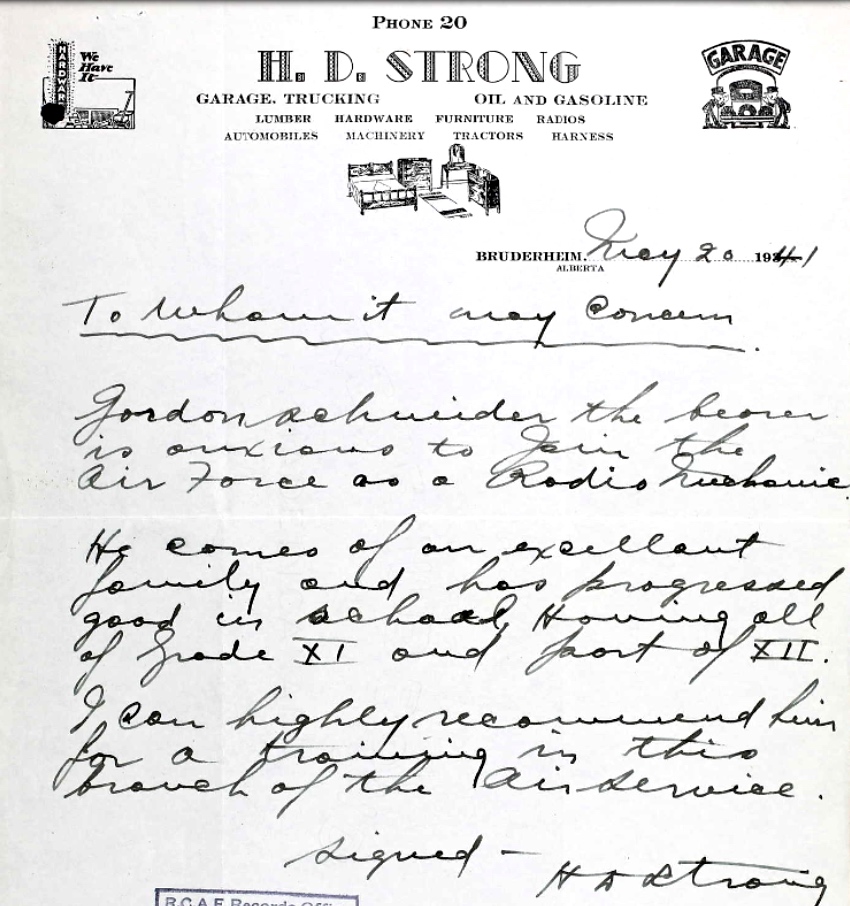 PHONE 20
HARDWARE
We
Have
It
H. D. STRONG
GARAGE
GARAGE. TRUCKING OIL AND GASOLINE
LUMBER HARDWARE FURNITURE RADIOS
AUTOMOBILES MACHINERY TRACTORS HARNESS
BRUDERHEIM. May 20 1941
ALBERTA
To Whom it may Concern
Gordon Schneider the bearer
is anxious to Join the
Air Force as a Radio Mechanic
He comes of an excellant
family and has progressed
good in school, Having all
of Grade XI and part of XII.
I can highly recommend him
for a training in this
branch of the Air service.
signed –
H D Strong
R.C.A.F. Records